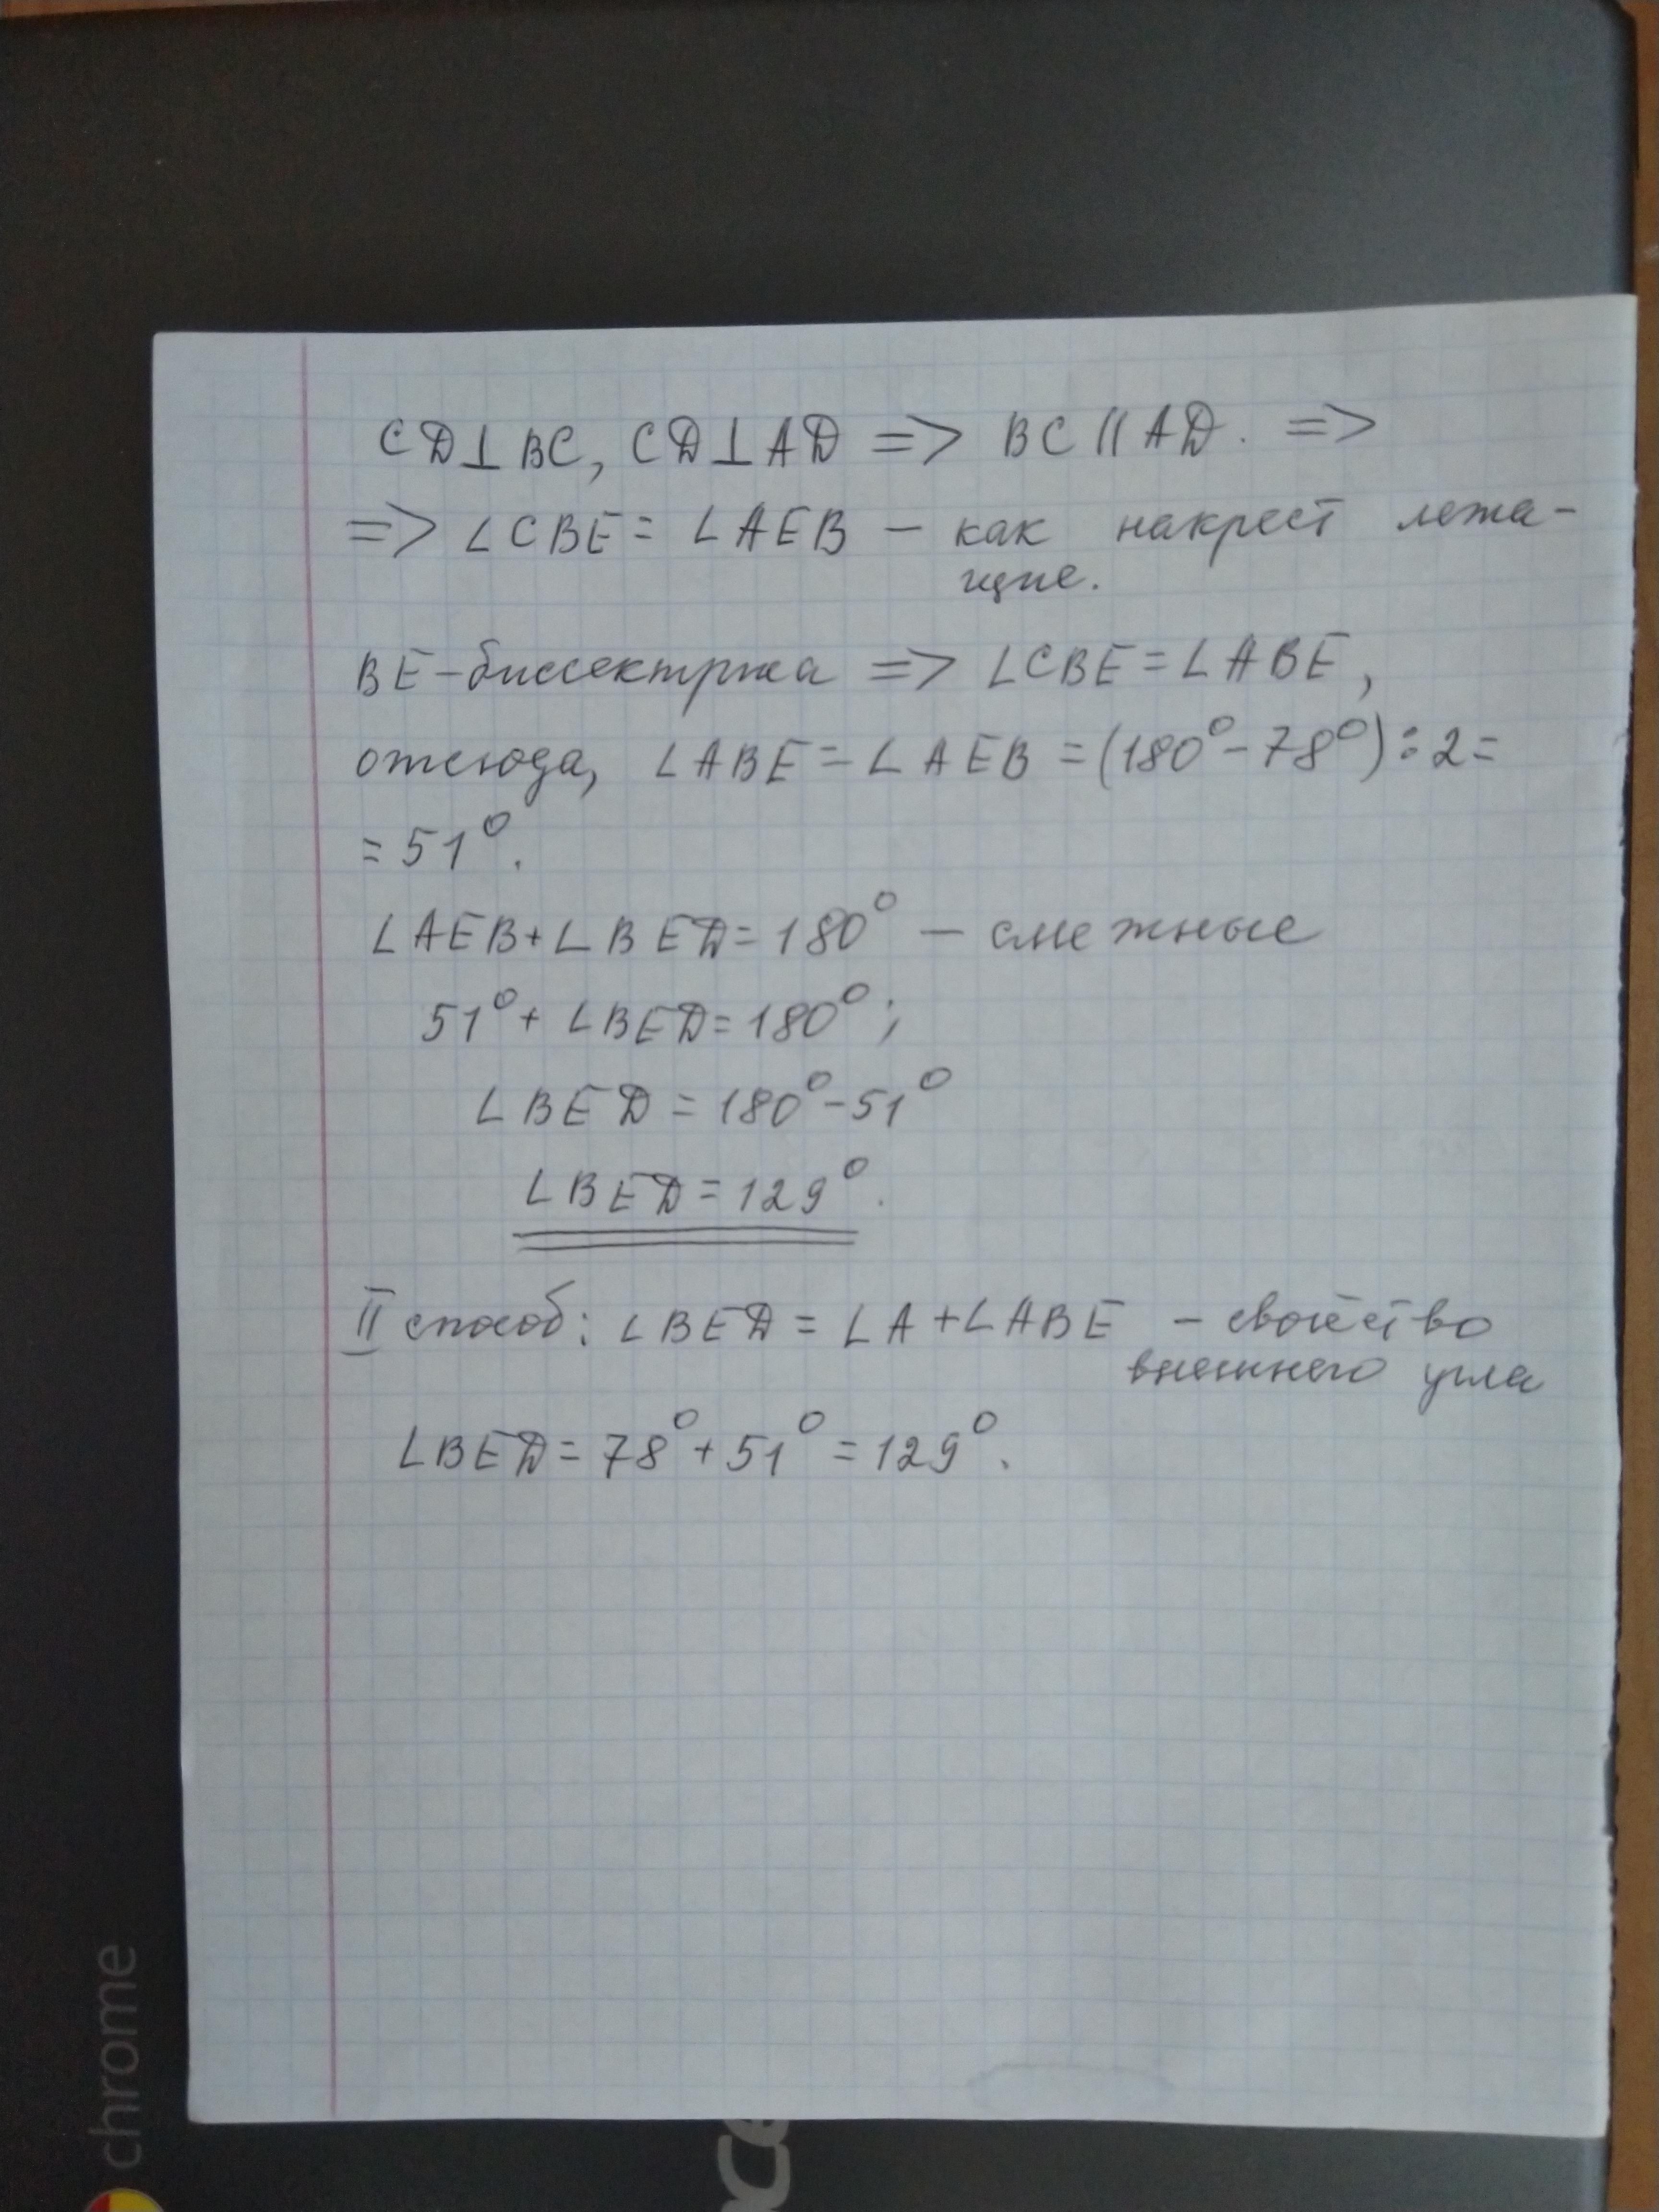 CD⊥BC, CD⊥AD => BC || AD. =>
=> ∠CBE = ∠AEB – как накрест лежа-
щие.
BE-биссектриса => ∠CBE = ∠ABE,
отсюда, ∠ABE = ∠AEB = (180° - 78°) : 2 =
= 51°.
∠AEB + ∠BED = 180° – смежные
51° + ∠BED = 180°;
∠BED = 180° - 51°
∠BED = 129°.
II способ: ∠BED = ∠A + ∠ABE – свойство
внешнего угла
∠BED = 78° + 51° = 129°.
chrome